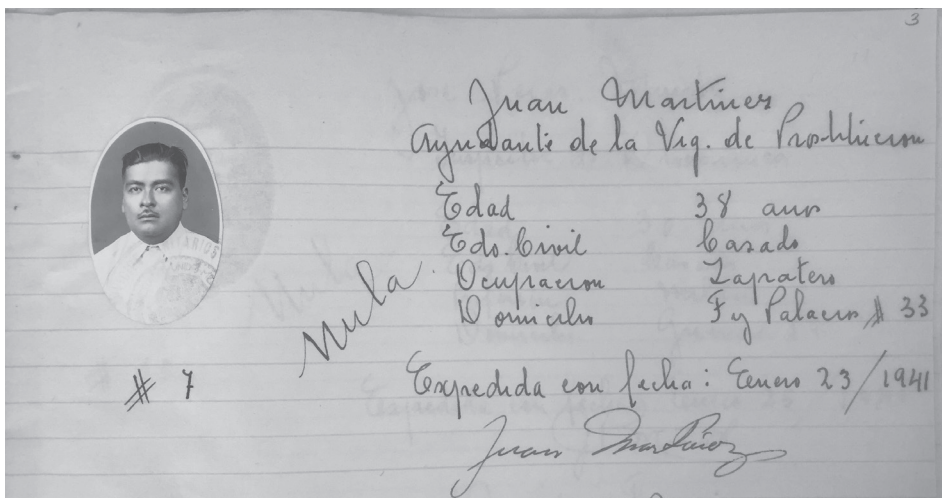 3
Juan Martinez
Ayudante de la Vig. de Prostitucion
Edad 38 anos
Edo. Civil Casado
Ocupacion Zapatero
Domicilio F y Palacio # 33
Nula.
# 7
Expedida con fecha: Enero 23/1941
Juan Martínez